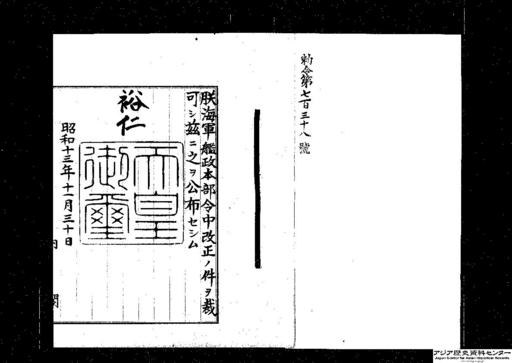 勅令第七百三十八號
朕海軍艦政本部令中改正ノ件ヲ裁
可シ茲ニ之ヲ公布セシム
裕仁
天皇
御璽
昭和十三年十一月三十日
内
閣
アジア歴史資料センター
Japan Center for Asian Historical Records